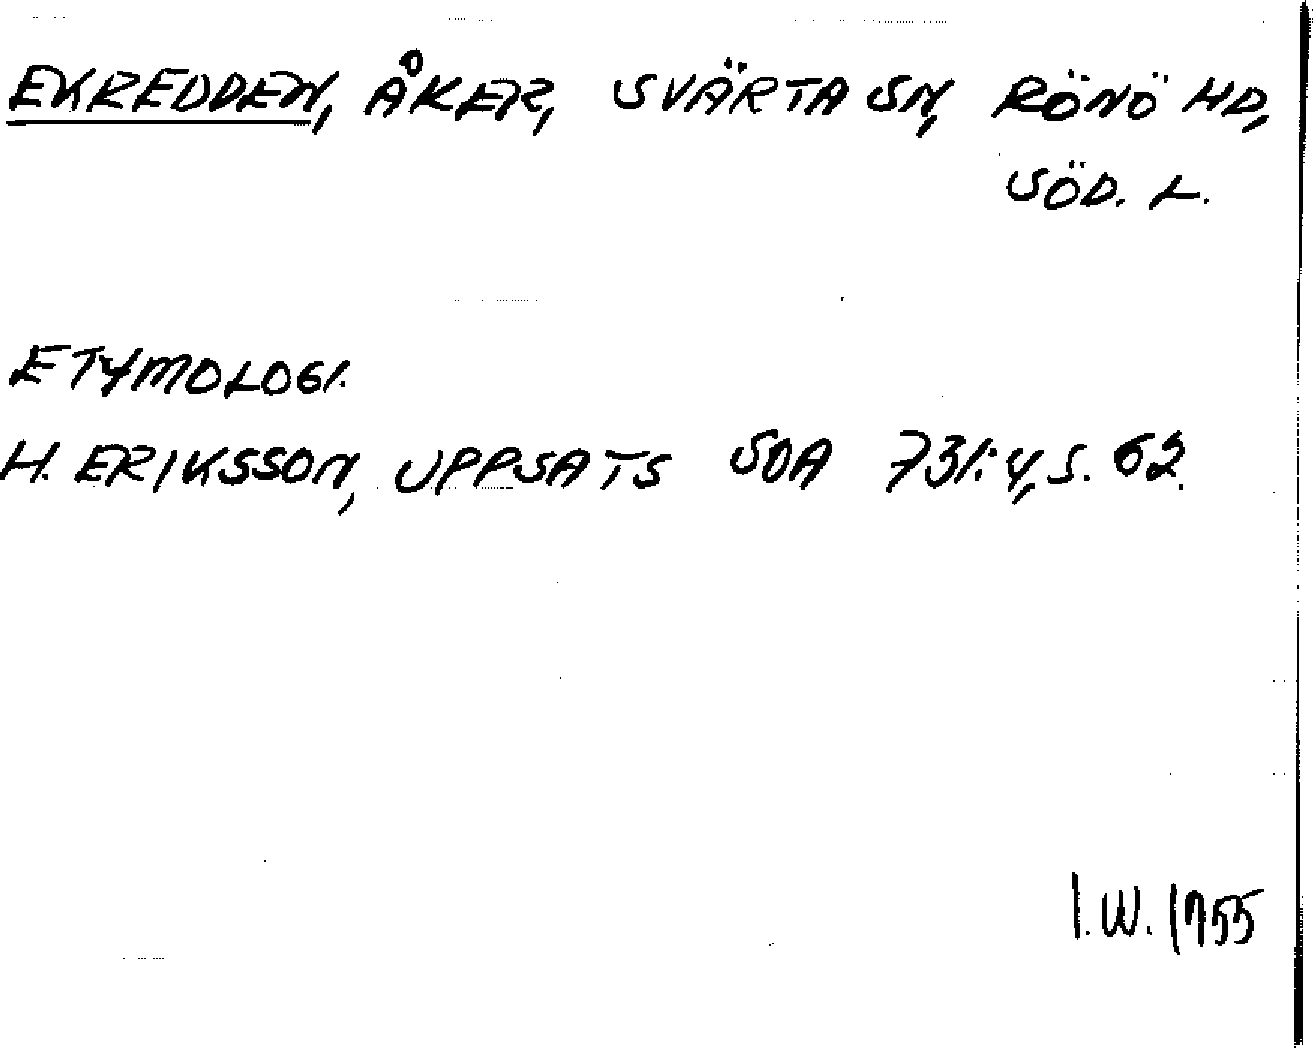 EKREDDEN, ÅKER, SVÄRTA SN, RÖNÖ HD,
SÖD. L.
ETYMOLOGI.
H. ERIKSSON, UPPSATS SOA 731:4, S. 62.
I.W. 1955